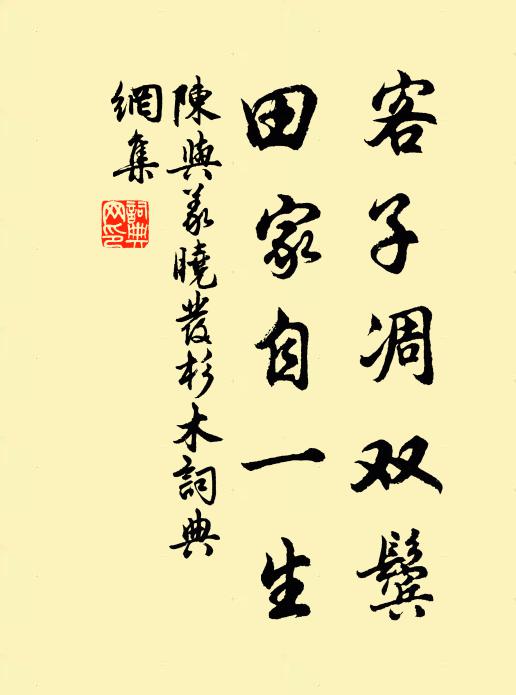 客子凋双鬓
田家自一生
陳與义曉發杉木詞典
網集
詞典
网印